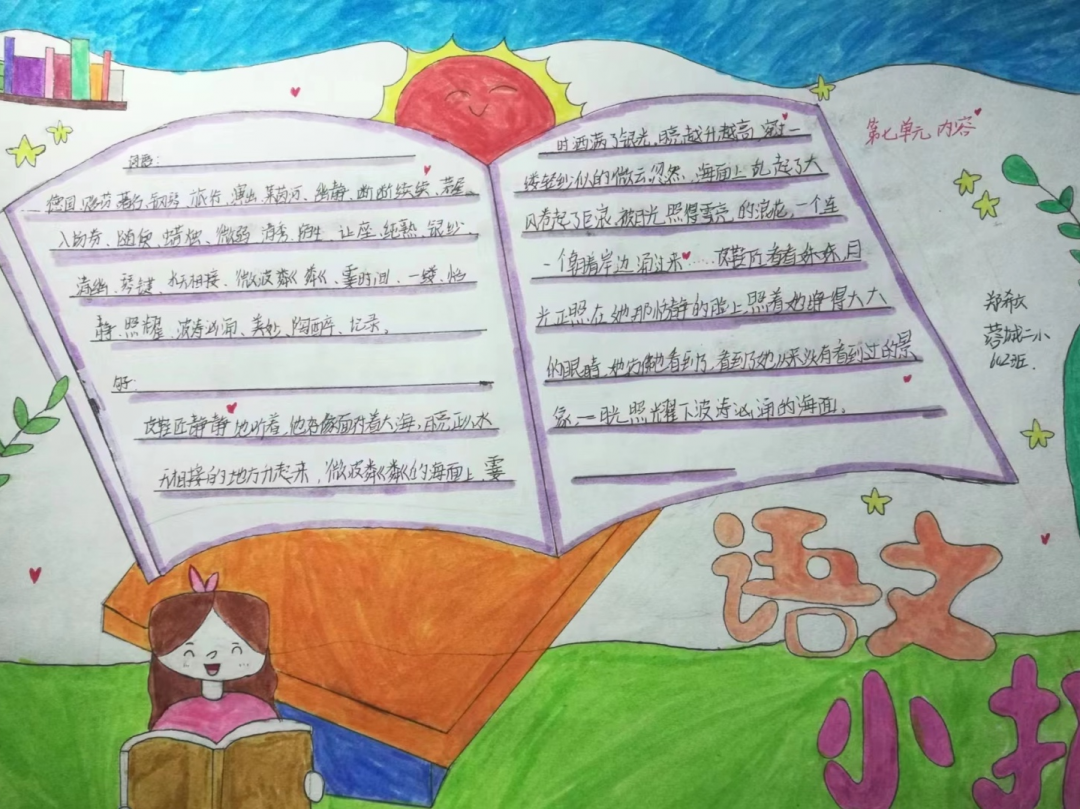 词语:
德国、著名、钢琴、旅行、演出、莱茵河、幽静、断断续续、
入场券、随便、蜡烛、微弱、清秀、陌生、让座、纯熟、银纱、
清幽、琴键、水天相接、微波粼粼、霎时间、一缕、恬
静、照耀、波涛汹涌、美妙、陶醉、记录。
皮鞋匠静静地听着,他好像面对着大海,月亮正从水
天相接的地方升起来,微波粼粼的海面上,霎
时洒满了银光,月亮越升越高,穿过一
缕轻纱似的微云忽然,海面上刮起了大
风卷起了巨浪,被月光照得雪亮的浪花,一个连
一个朝着岸边涌过来……皮鞋匠看着妹妹,月
光正照在她那恬静的脸上,照着她睁得大大
的眼睛,她仿佛也看到了,看到了她从来没有看到过的景
象,一月光照耀下波涛汹涌的海面。
第七单元 内容
蓉城二小
语文
小